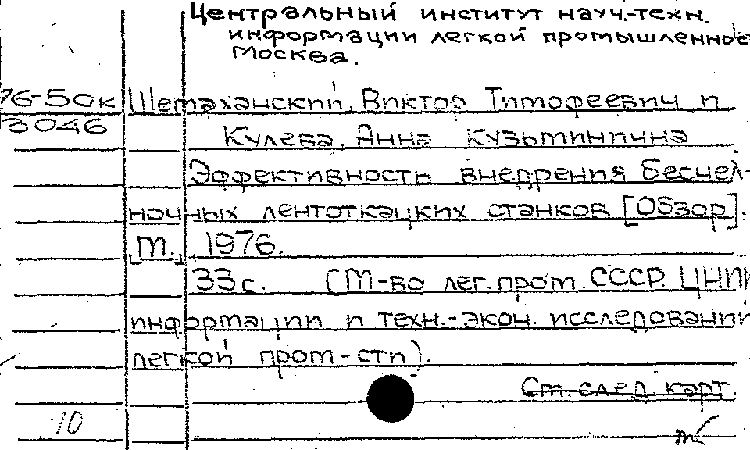 Центральный институт науч.-техн.
информации легкой промышленнос
Москва.
76-50к Шемаханский, Виктор Тимофеевич и
3046 Кулева, Анна Кузьминична
Эффективность внедрения бесчел-
ночных лентоткацких станков [Обзор].
М., 1976.
33с. (М-во лег. пром. СССР. ЦНИИ
информации и техн.-экон. исследований
легкой пром-сти).
См. след. карт.
10